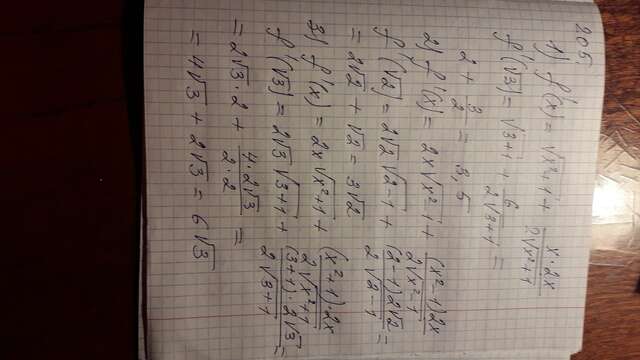 205.
1) f'(x) = √x²+1 + x·2x / 2√x²+1
f'(√3) = √3+1 + 6 / 2√3+1 =
2 + 3/2 = 3,5
2) f'(x) = 2x√x²-1 + (x²-1)2x / 2√x²-1
f'(√2) = 2√2 √2-1 + (2-1)2√2 / 2√2-1 =
= 2√2 + √2 = 3√2
3) f'(x) = 2x√x²+1 + (x²+1)·2x / 2√x²+1
f'(√3) = 2√3 √3+1 + (3+1)·2√3 / 2√3+1 =
= 2√3·2 + 4·2√3 / 2·2 =
= 4√3 + 2√3 = 6√3